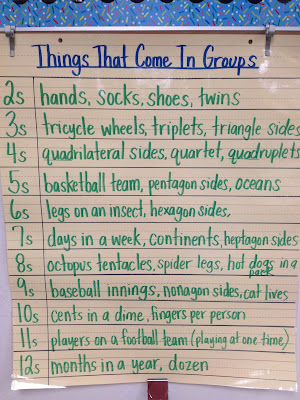 Things That Come In Groups
2s hands, socks, shoes, twins
3s tricycle wheels, triplets, triangle sides
4s quadrilateral sides, quartet, quadruplets
5s basketball team, pentagon sides, oceans
6s legs on an insect, hexagon sides,
7s days in a week, continents, heptagon sides
8s octopus tentacles, spider legs, hot dogs in a pack
9s baseball innings, nonagon sides, cat lives
10s cents in a dime, fingers per person
11s players on a football team (playing at one time)
12s months in a year, dozen